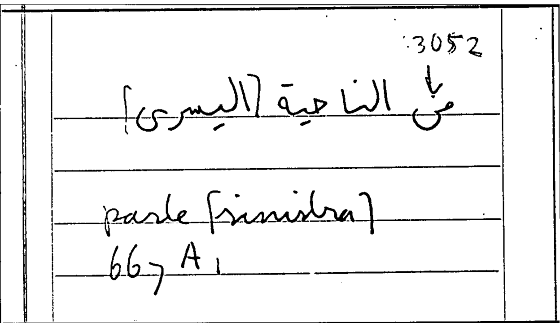 3052
من الناحية [اليسرى]
parte [sinistra]
667 A 1